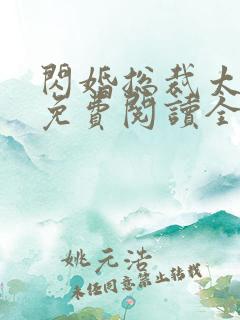 閃婚總裁太
免費閱讀全
姚元浩
未任同意禁止轉載